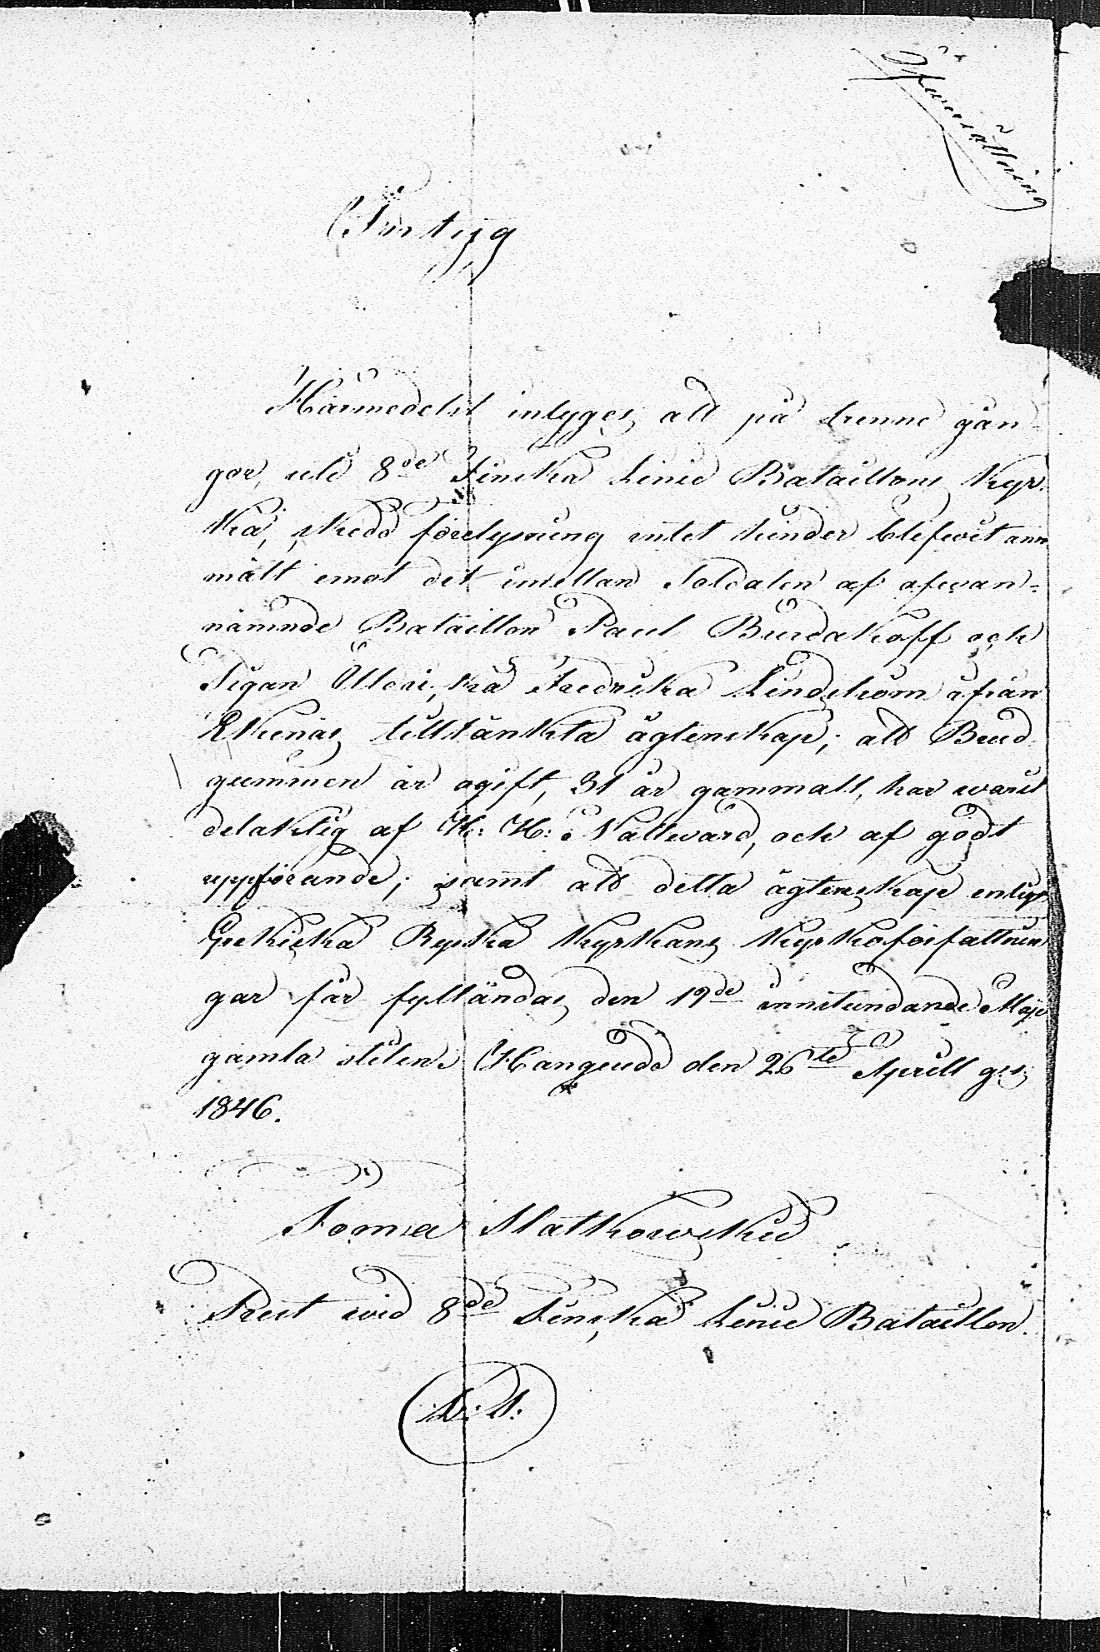 Öfversättning
Intyg
Härmedelst intyges, att på trenne gån-
gor, uti 8de Finska Linie Bataillons Kyr-
ka, skedd förelysning intet hinder blifvit an-
mält emot det imellan Soldaten af afvan-
nämnde Bataillon Paul Burdakoff och
Pigan Ulrika Fredrika Lindström ifrån
Ekenäs tilltänkta ägtenskap; att Brud-
gummen är ogift, 31 år gammalt, har warit
delaktig af H: H: Nattward, och af godt
uppförande; samt att detta ägtenskap enligt
Grekiska Ryska Kyrkans Kyrkoförfattnin
gar får fylländas den 19de innstundande Maji
gamla stilen. Hangeudd den 26te Aprill g. s.
1846.
Foma Matkowskie
Prest wid 8de Finska Linie Bataillon.
L: S: